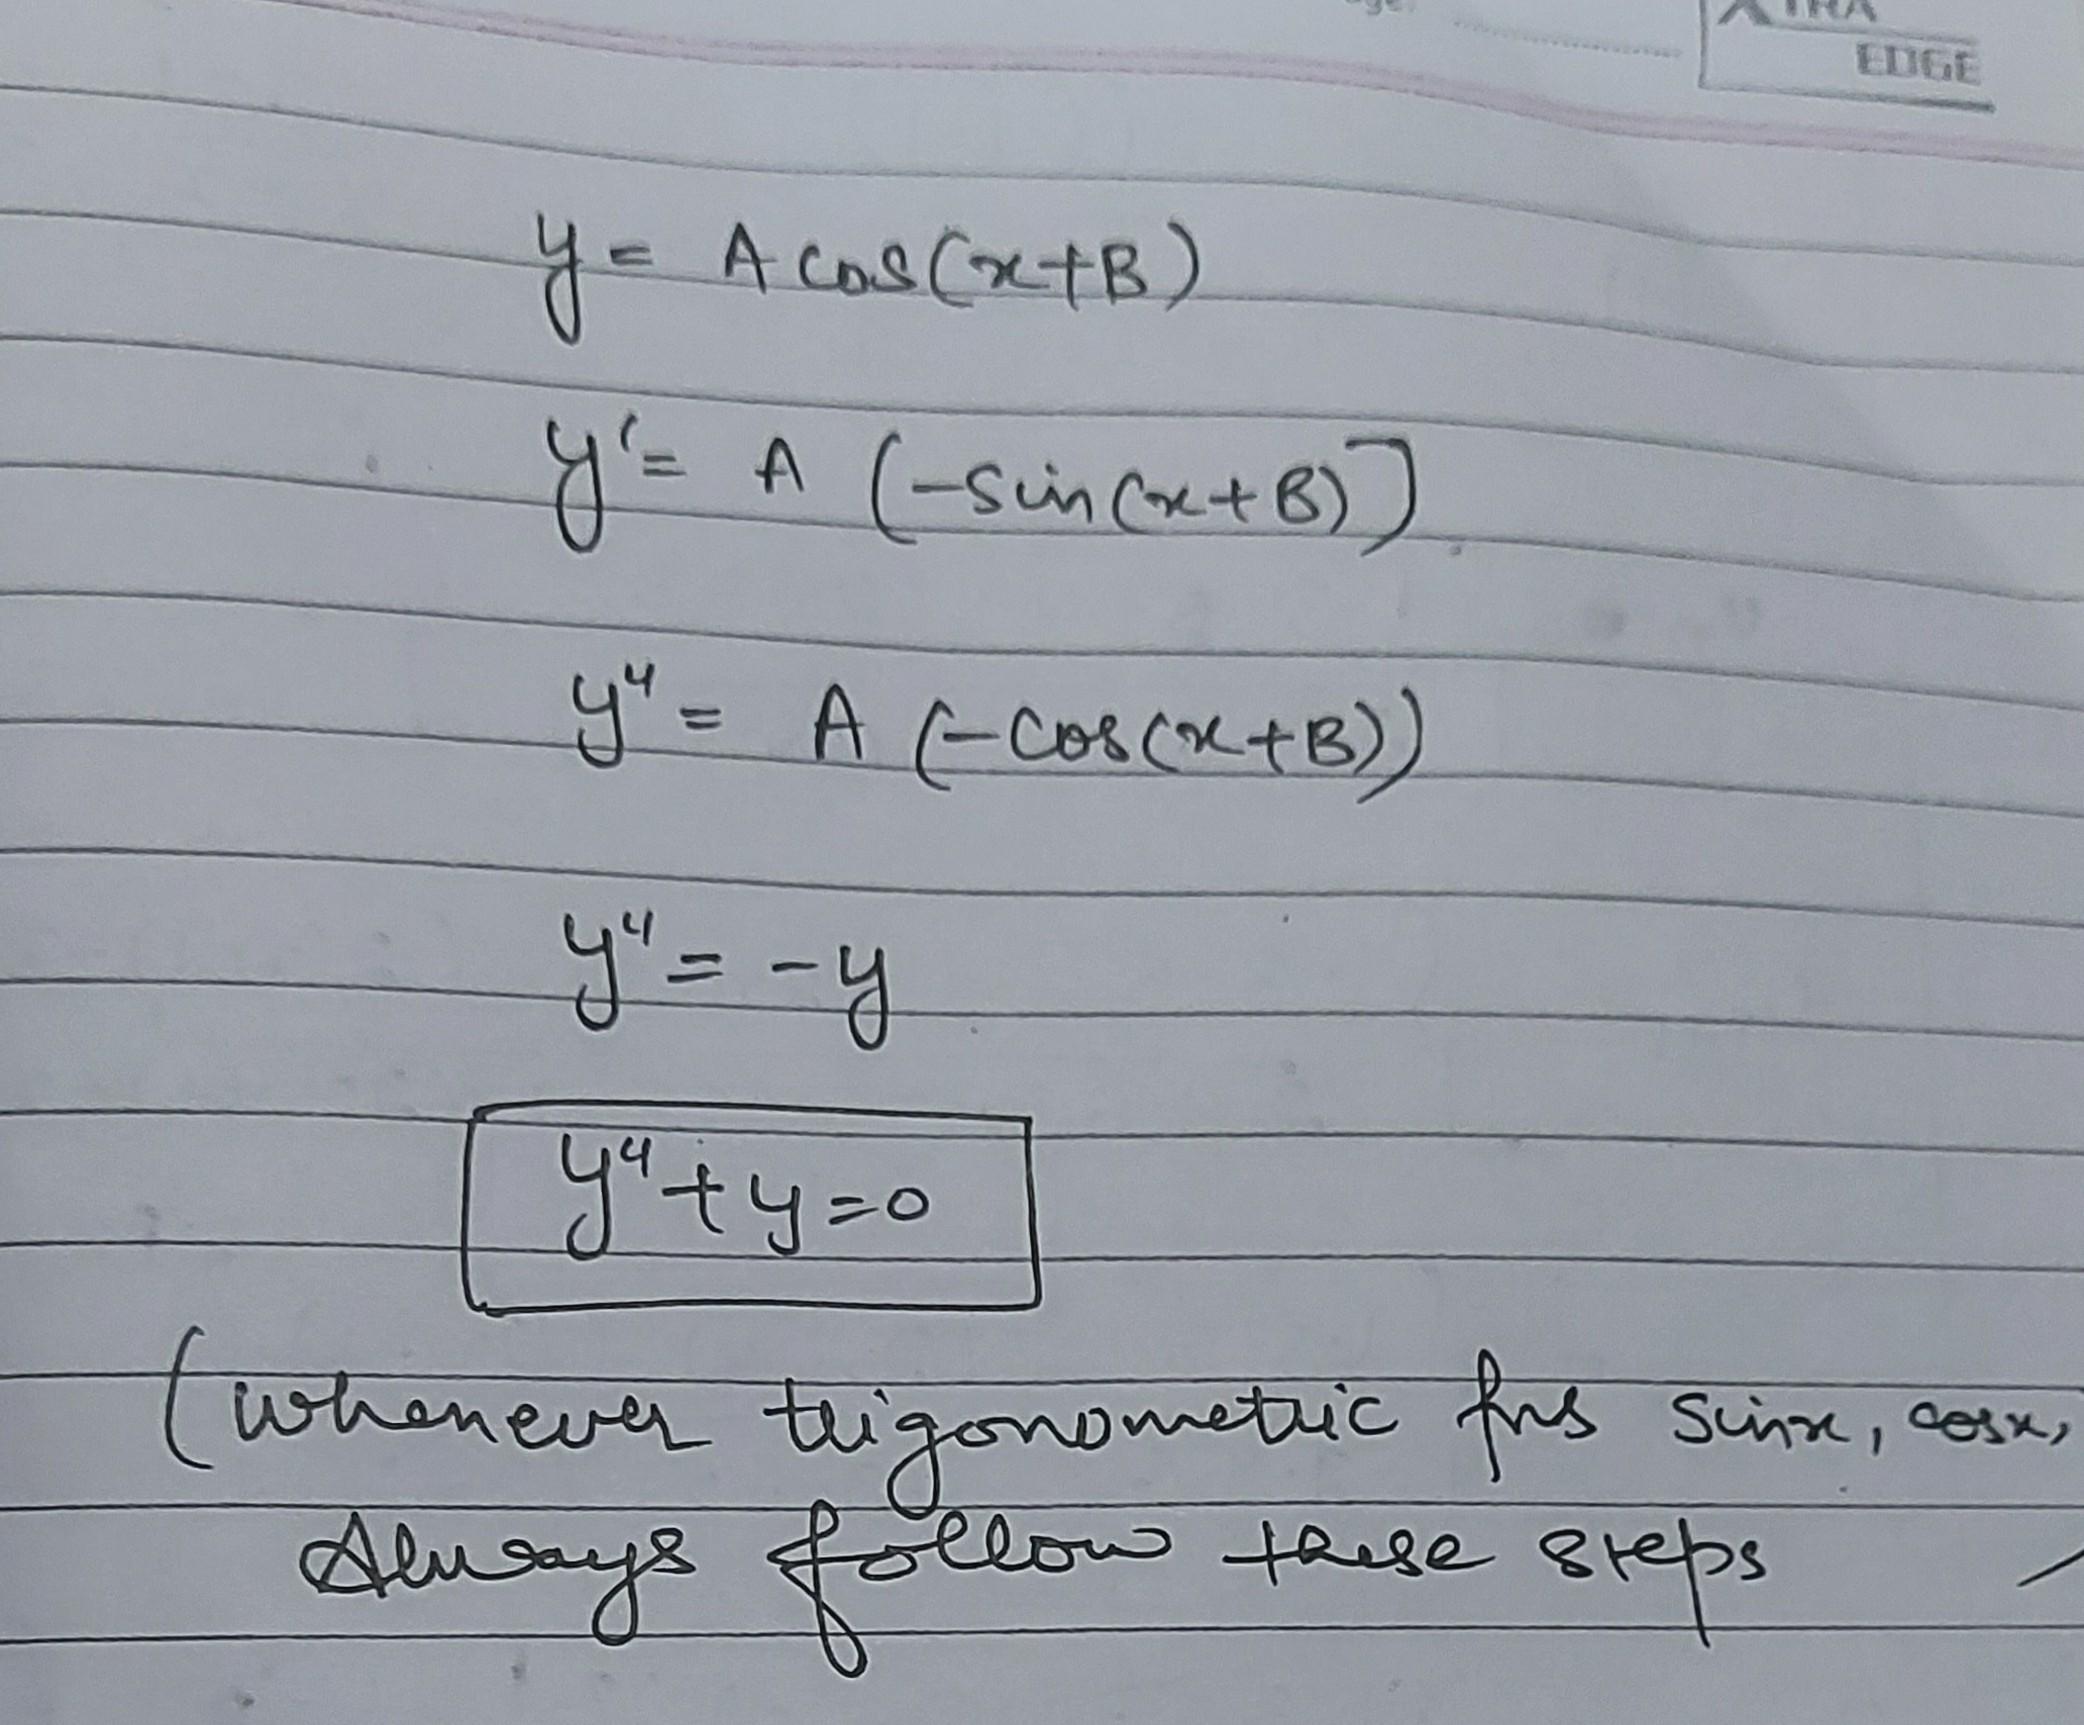 EDGE
y = A cos(x+B)
y' = A (-sin(x+B)]
y" = A (-cos(x+B))
y" = -y
y" + y = 0
(whenever trigonometric fns sinx, cosx,
Always follow these steps